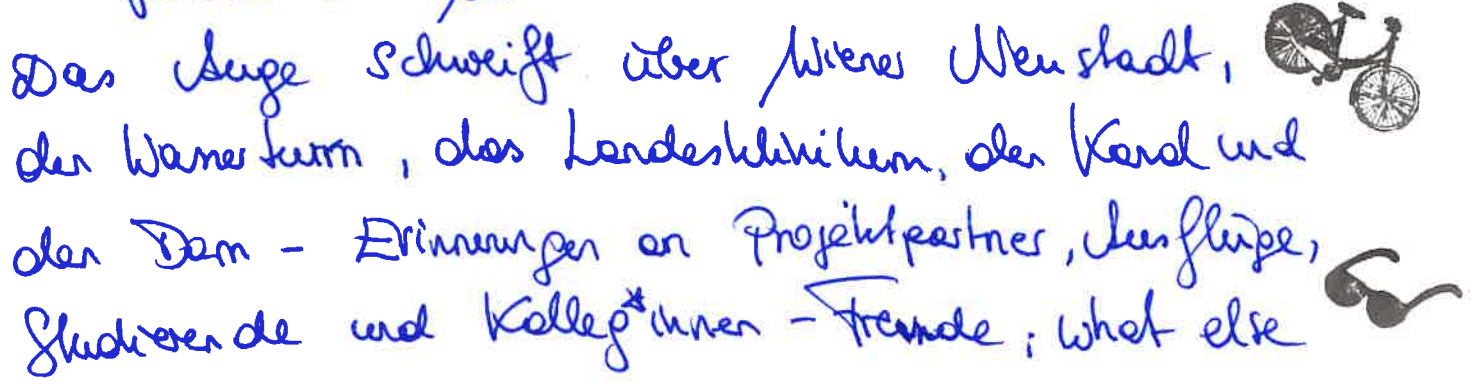 Das Auge schweift über Wiener Neustadt,
den Wasserturm, das Landesklinikum, den Kanal und
den Dom - Erinnerungen an Projektpartner, Ausflüge,
Studierende und Kolleg*innen - Freunde, what else